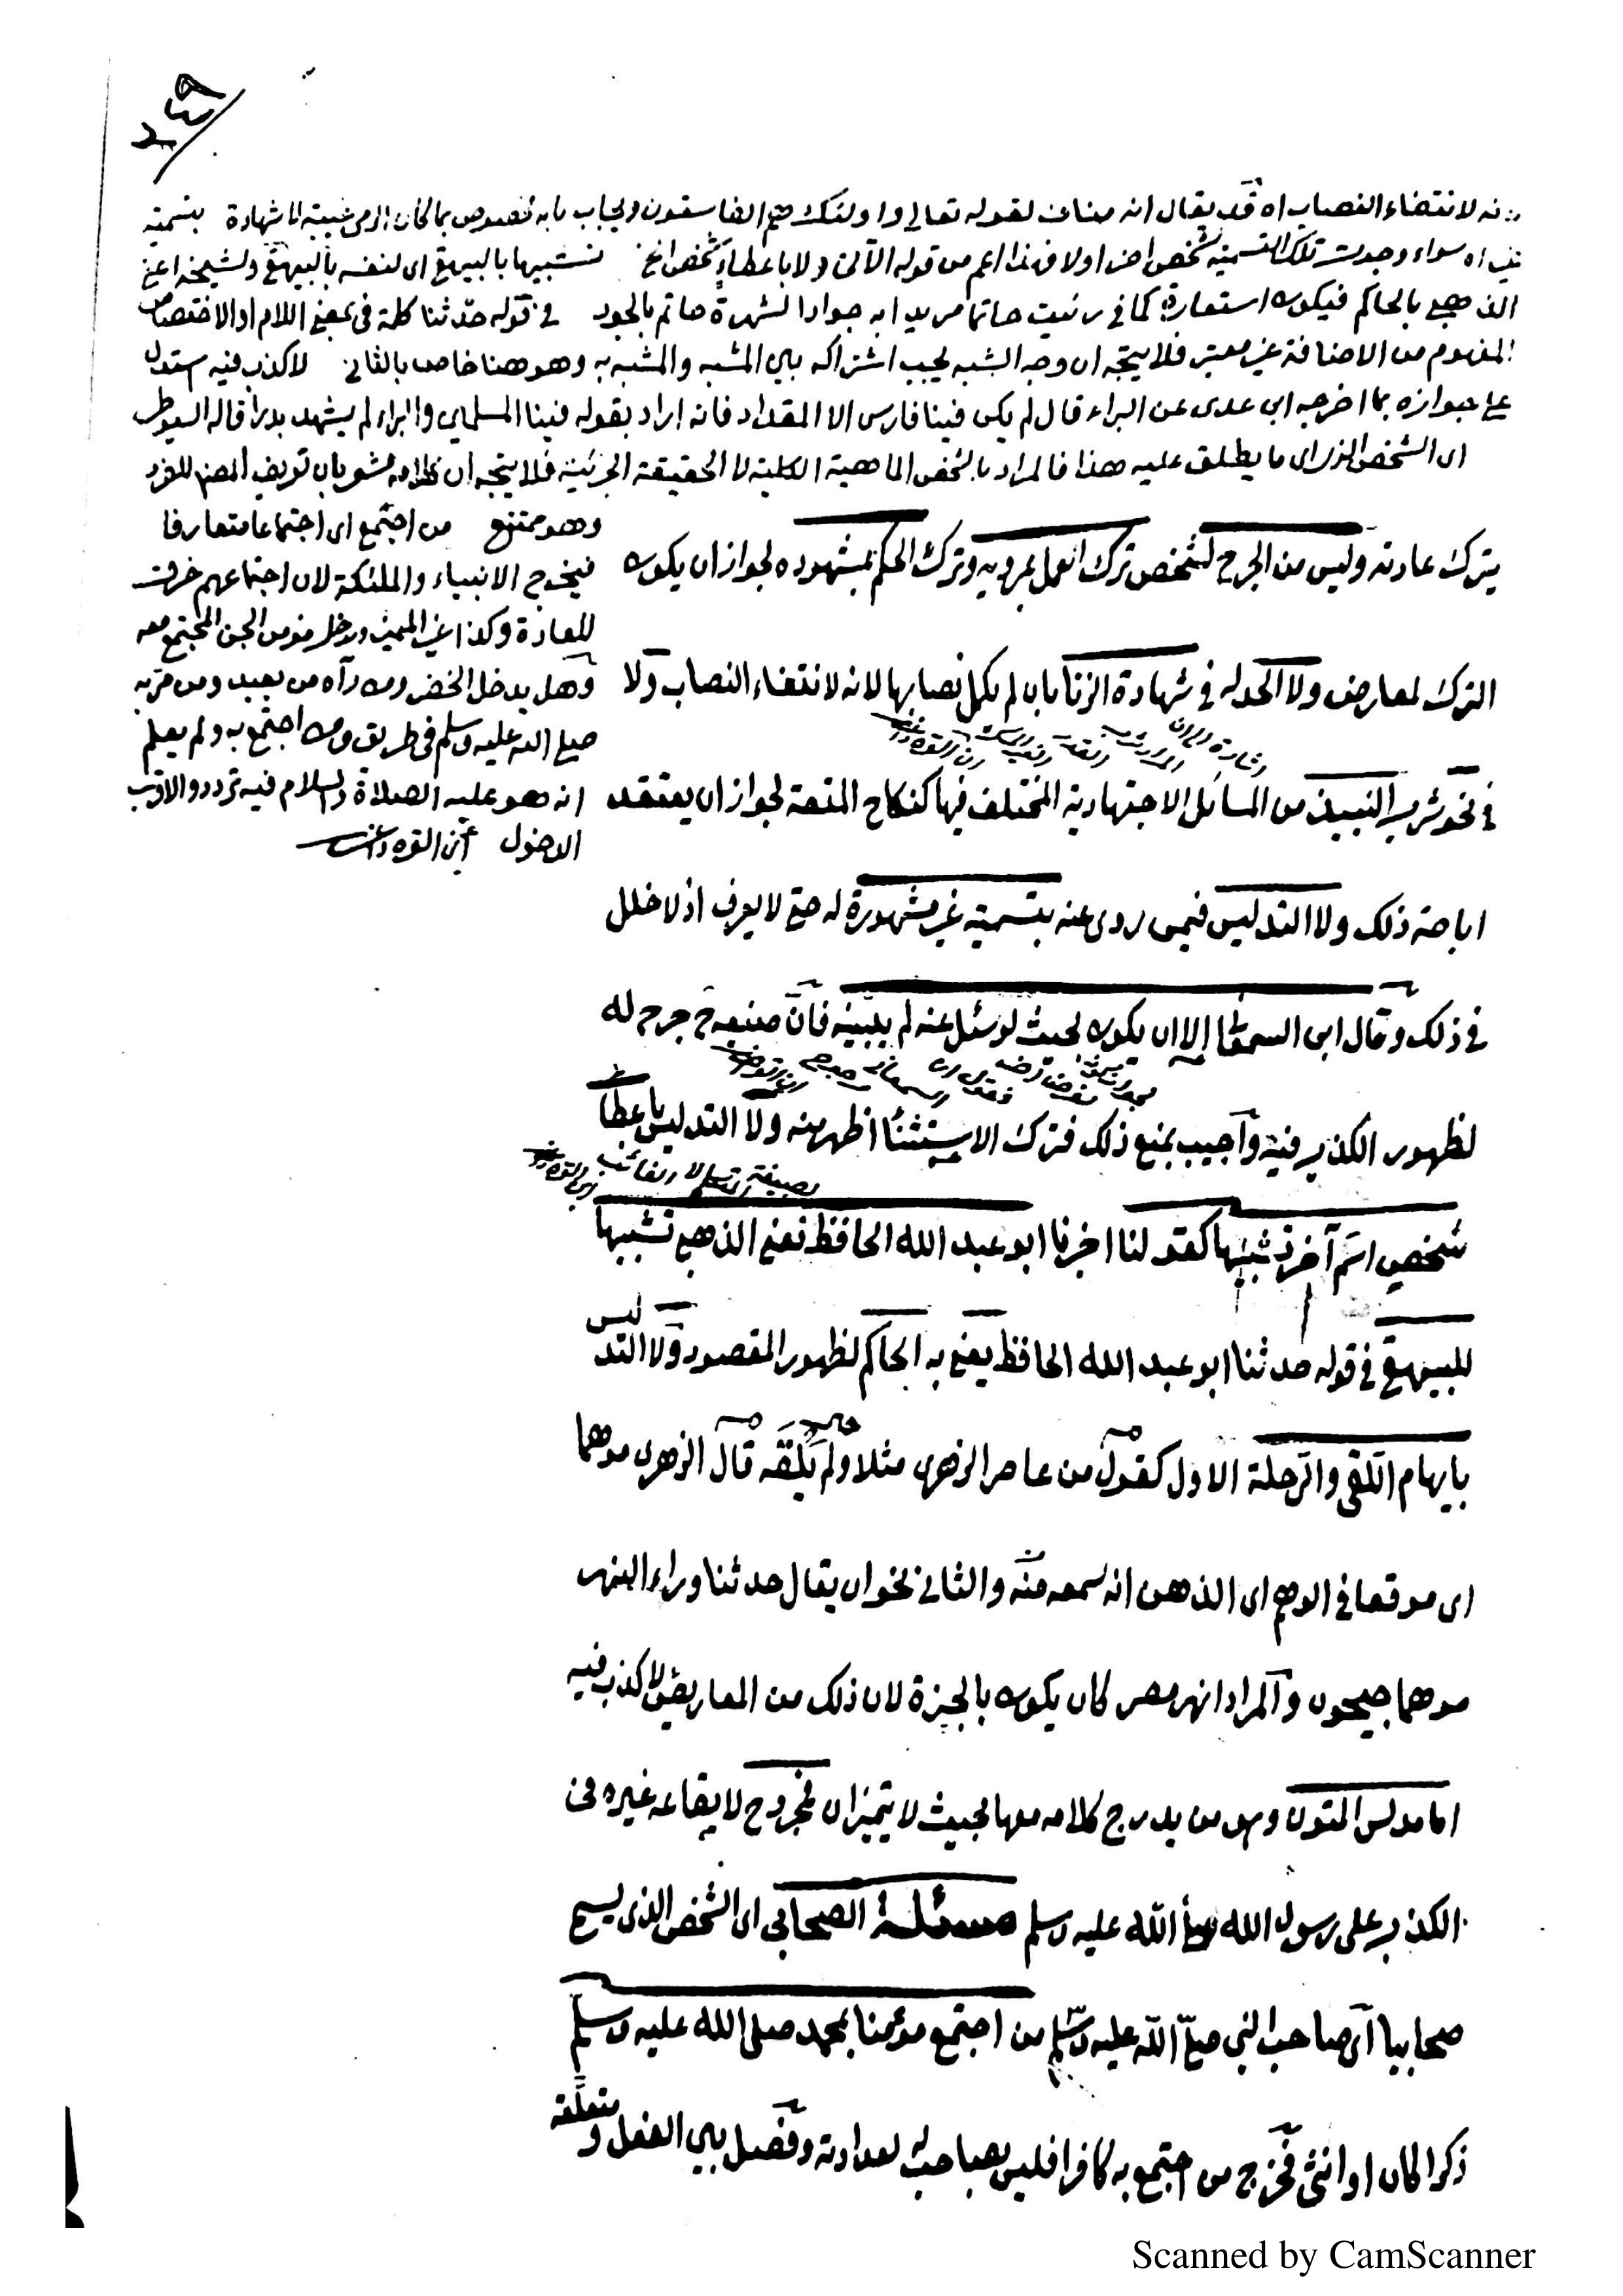 ٢٤٩
نه لانتفاء النصاب اه قد يقال انه مناف لقوله تعالى واولئك هم الفاسقون ويجاب بانه مخصوص بما كان الرمى غيبة لا شهادة بتسمية
اه سواء وجدت تلك التسمية لشخص اخر اولا فهذا اعم من قوله الآتى ولا باعطاء شخص الخ تشبيها بالبيهقى اى لنفسه بالبيهقى ولشيخه اعنى
الذهبى بالحاكم فيكون استعارة كما فى رئيت حاتما مريدا به جوادا لشهرة حاتم بالجود فى قوله حدثنا كلمة فى بمعنى اللام او الاختصاص
المفهوم من الاضافة غير معتبر فلا يتجه ان وجه الشبه يجب اشتراكه بين المشبه والمشبه به وهو هنا خاص بالثانى لا كذب فيه استدل
على جوازه بما اخرجه ابن عدى عن البراء قال لم يكن فينا فارس الا المقداد فانه اراد بقوله فينا المسلمين والبراء لم يشهد بدرا قاله السيوطى
اى الشخص الذى اى ما يطلق عليه هذا فالمراد بالشخص الماهية الكلية لا الحقيقة الجزئية فلا يتجه ان كلامه مشعر بان تعريف المصنف للفرد
وهو ممتنع من اجتمع اى اجتماعا متعارفا
فيخرج الانبياء والملئكة لان اجتماعهم خرقت
للعادة وكذا غير المميز ودخل مؤمن الجن المجتمع معه
وهل يدخل الخضر ومن رآه من بعيد ومن مر به
صلى الله عليه وسلم فى طريق ومن اجتمع به ولم يعلم
انه هو عليه الصلاة والسلام فيه تردد والاقرب
الدخول ابن القره داغى
يترك عادته وليس من الجرح لشخص ترك العمل بمرويه وترك الحكم بمشهوده لجواز ان يكون
الترك لمعارض ولا الحد له فى شهادة الزنا بان لم يكمل نصابها لانه لانتفاء النصاب ولا
فى نحو شرب النبيذ من المسائل الاجتهادية المختلف فيها كنكاح المتعة لجواز ان يعتقد
اباحة ذلك ولا التدليس فيمن روى عنه بتسمية غير مشهورة له حتى لا يعرف اذ لا خلل
فى ذلك وقال ابن السمعانى الا ان يكون بحيث لو سئل عنه لم يبينه فان صنيعه ح جرح له
لظهور الكذب فيه واجيب بمنع ذلك فترك الاستثناء اظهر منه ولا التدليس باعطاء
شخص اسم آخر تشبيها كقولنا اخبرنا ابو عبد الله الحافظ نعنى الذهبى تشبيها
للبيهقى فى قوله حدثنا ابو عبد الله الحافظ يعنى به الحاكم لظهور المقصود ولا التدليس
بايهام التلقى والرحلة الاول كقول من عاصر الزهرى مثلا ولم يلقه قال الزهرى موهما
اى موقعا فى الوهم اى الذهن انه سمعه منه والثانى نحو ان يقال حدثنا وراء النهر
موهما جيحون والمراد نهر مصر كان يكون بالجيزة لان ذلك من المعاريض لا كذب فيه
اما مدلس المتون وهو من يدرج كلامه معها بحيث لا يتميزان فمجروح لايقاعه غيره فى
الكذب على رسول الله صلى الله عليه وسلم مسئلة الصحابى اى الشخص الذى يسمى
صحابيا اى صاحب النبى صلى الله عليه وسلم من اجتمع مؤمنا بمحمد صلى الله عليه وسلم
ذكرا كان او انثى فخرج من اجتمع به كافرا فليس بصاحب له لعداوته وفصل بين الفعل ومتعلقه
Scanned by CamScanner